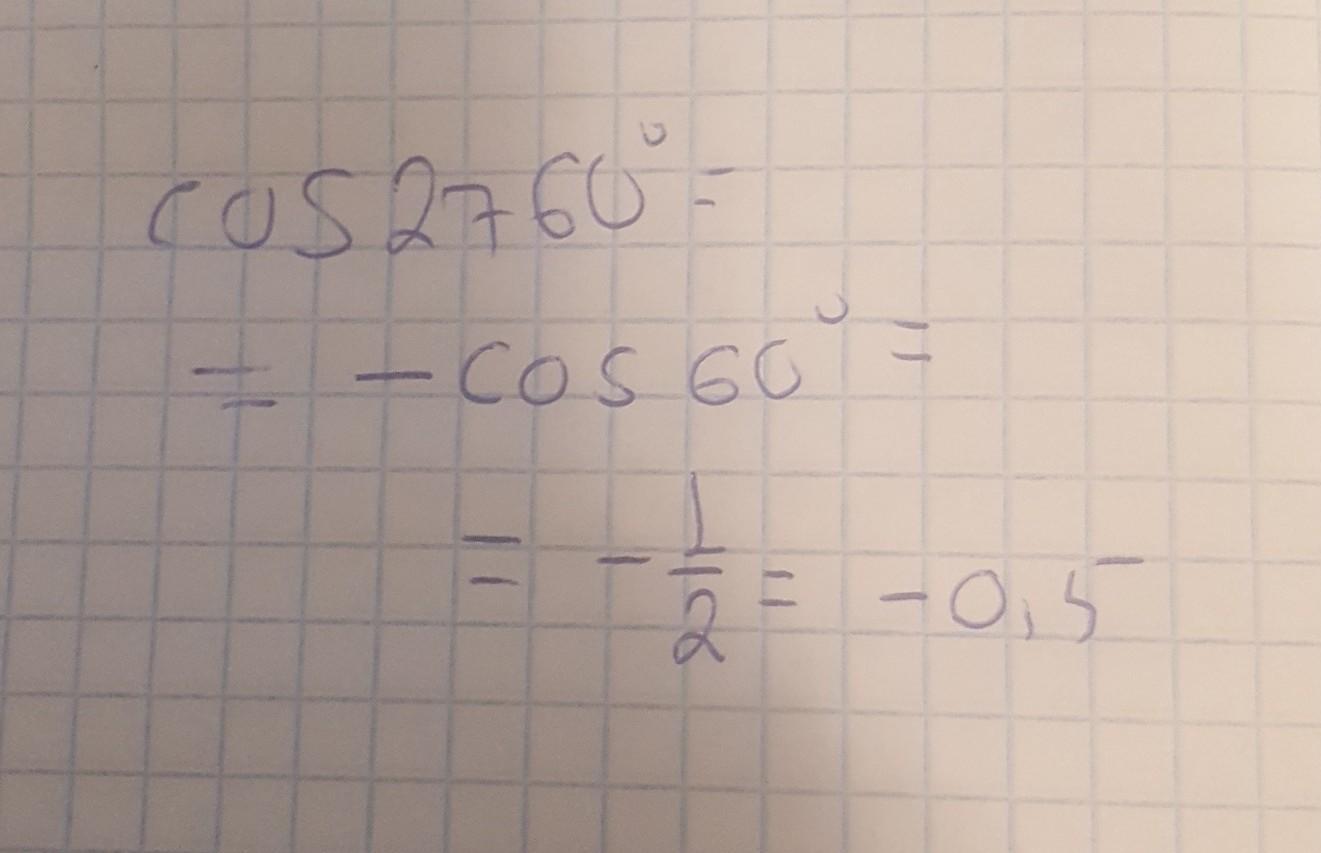 cos 2760° =
= - cos 60° =
= - 1/2 = - 0,5